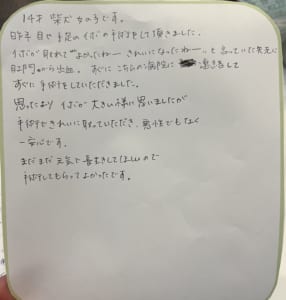 14才 柴犬 女の子です。
昨年 目や手足のイボの手術をして頂きました。
イボが取れて“よかったねー きれいになったねー”と言っていた矢先に
肛門から出血。すぐにこちらの病院に 連絡して
すぐに手術をしていただきました。
思ったより イボが大きい様に思いましたが
手術できれいに取っていただき、悪性でもなく
一安心です。
まだまだ元気で長生きしてほしいので
手術してもらってよかったです。